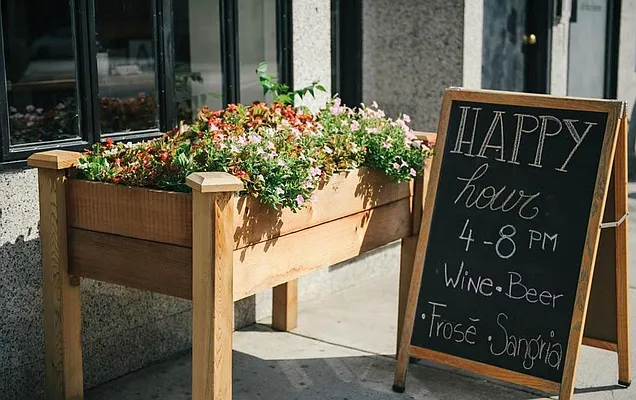 HAPPY
hour
4-8 PM
Wine • Beer
• Frosé • Sangria